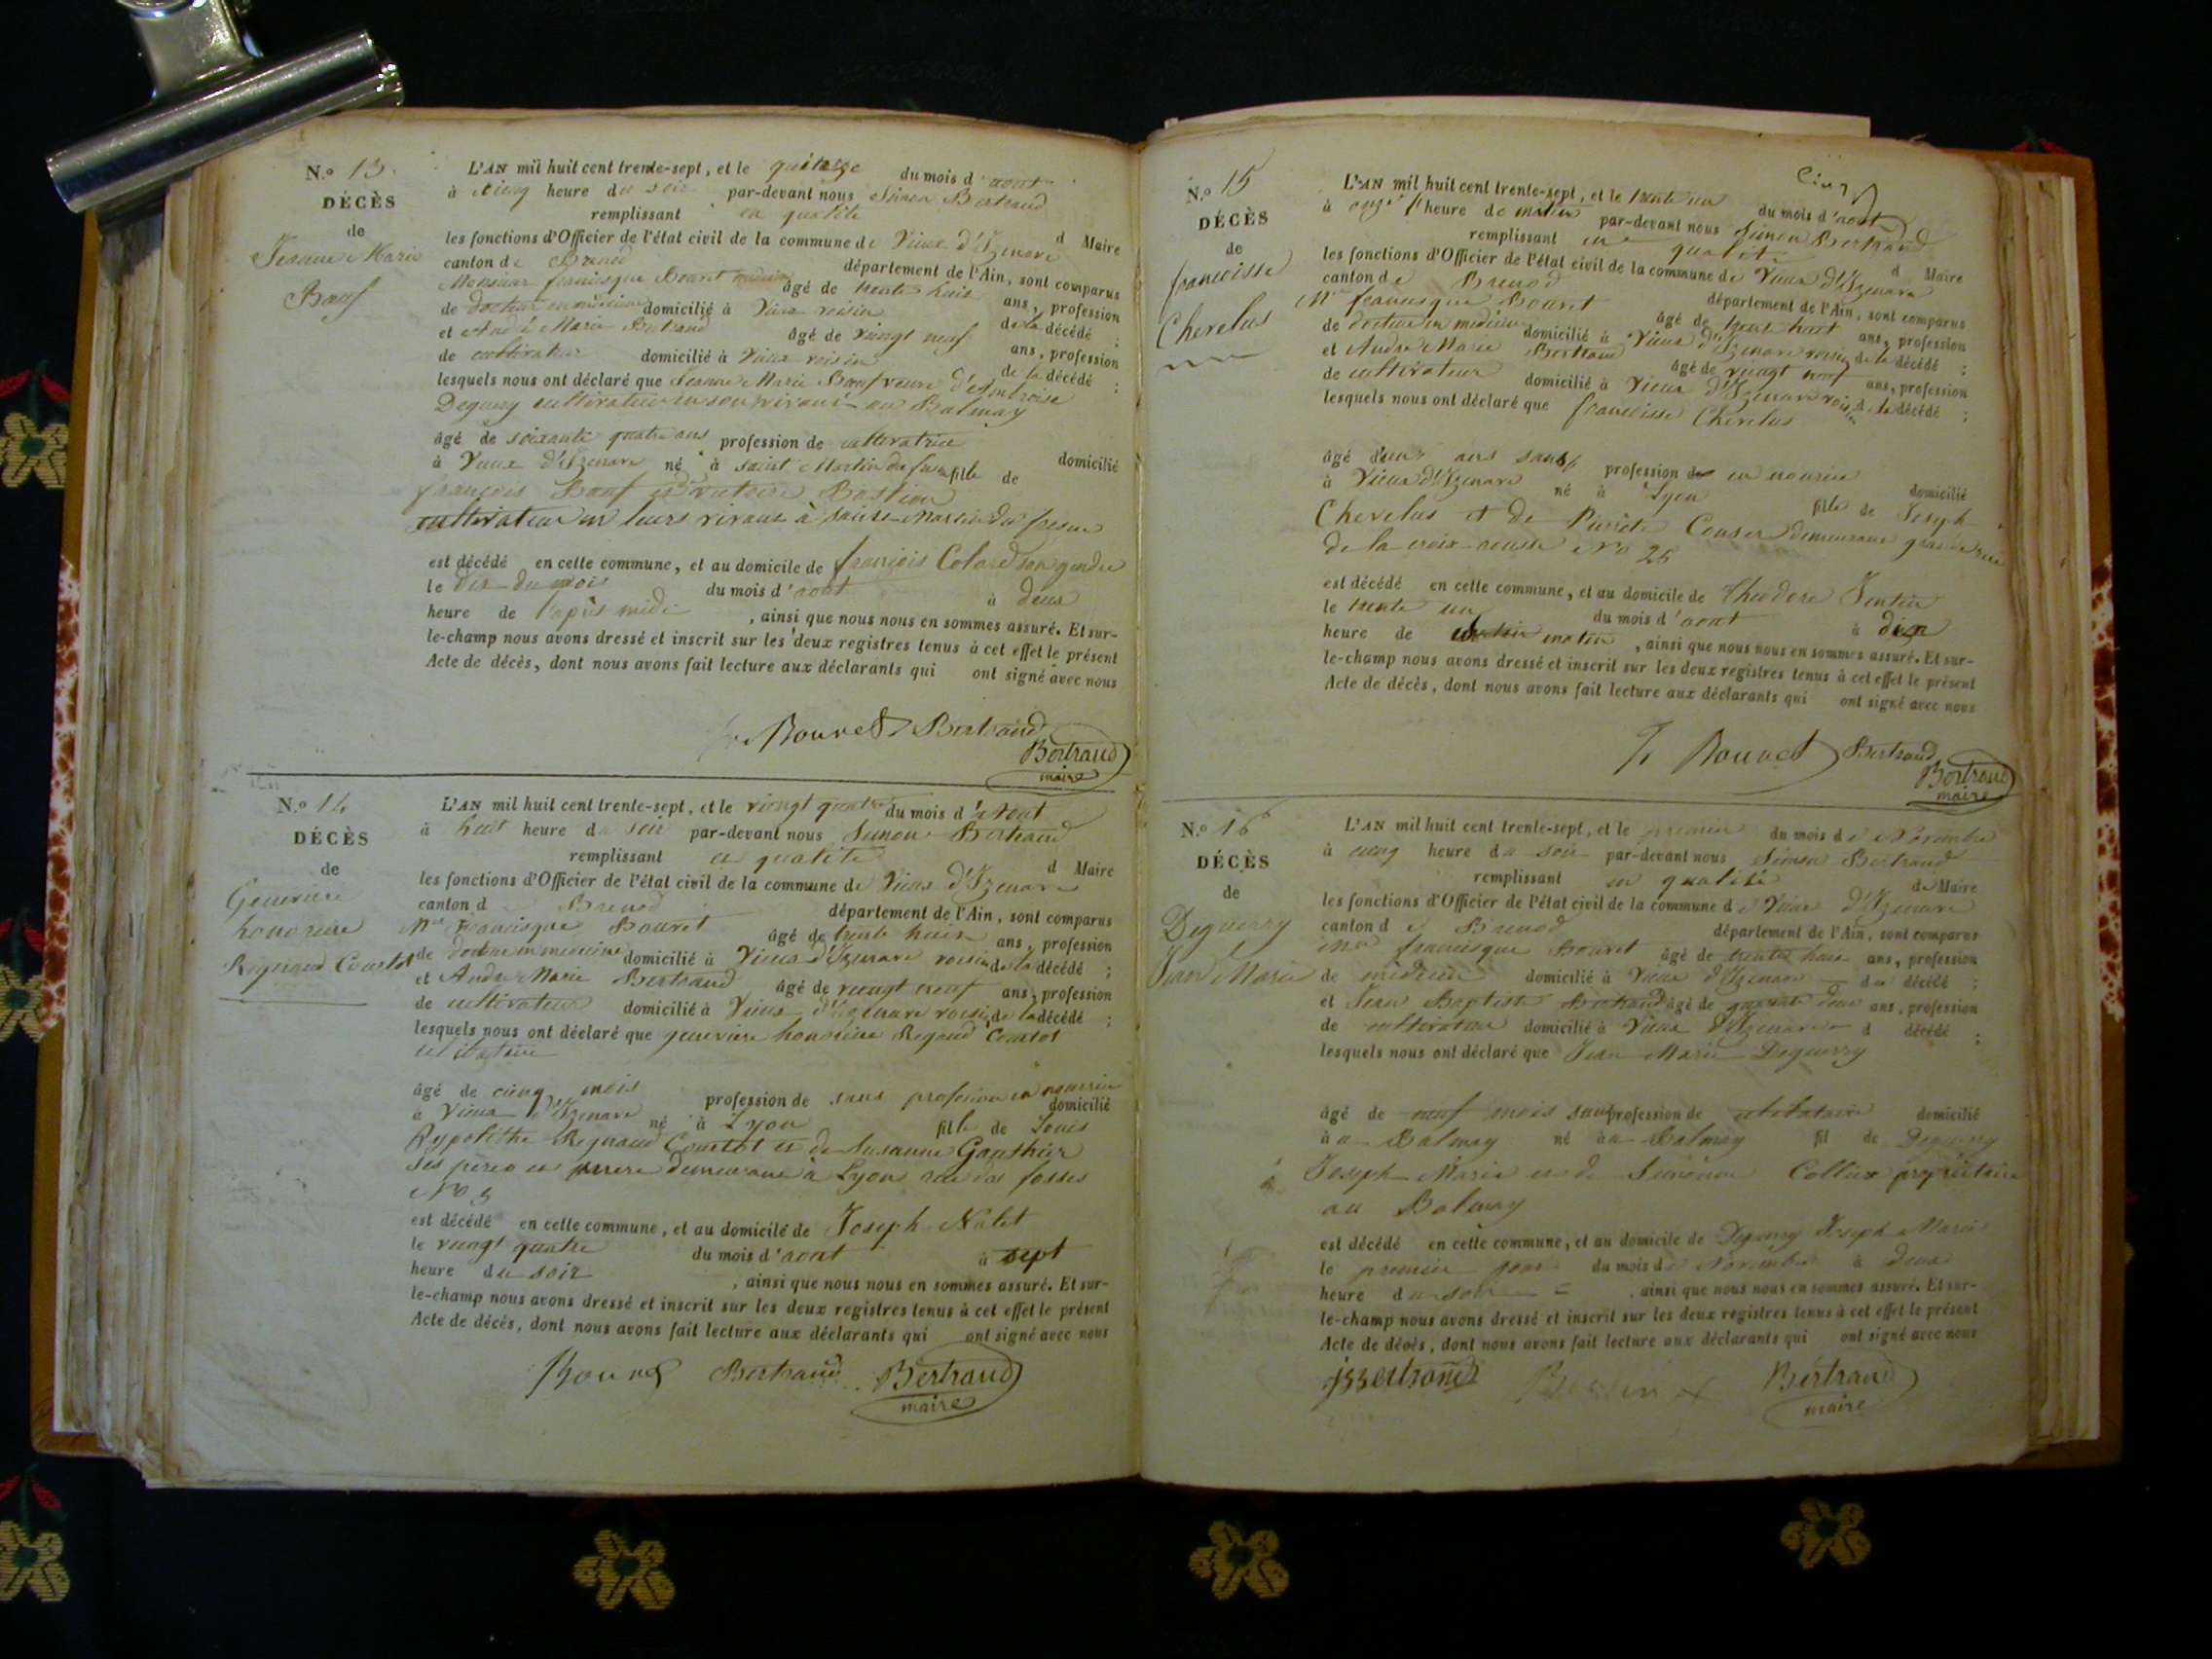 N.º 13.
DÉCÈS
de
Jeanne Marie
Bœuf
L'AN mil huit cent trente-sept, et le du mois d'aout
à cinq heure du soir par-devant nous Simon Bertrand
remplissant en qualité d Maire
les fonctions d'Officier de l'état civil de la commune de Vieux d'Izenave
canton de Brenod département de l'Ain, sont comparus
Monsieur francisque Bouvet âgé de trente huit ans, profession
de docteur en médecine domicilié à Vieux voisin de la décédé ;
et André Marie Bertrand âgé de vingt neuf ans, profession
de cultivateur domicilié à Vieux voisin de la décédé ;
lesquels nous ont déclaré que Jeanne Marie Bœuf veuve d'Ambroise
Deguerry cultivateur en son vivant au Balmay
âgé de soixante quatre ans profession de cultivatrice domicilié
à Vieux d'Izenave né à saint Martin du fresne fille de
françois Bœuf et Bastion
cultivateur en leurs vivant à saint Martin du fresne
est décédé en cette commune, et au domicile de françois Colard son gendre
le du mois du mois d'aout à deux
heure de l'après midi , ainsi que nous nous en sommes assuré. Et sur-
le-champ nous avons dressé et inscrit sur les deux registres tenus à cet effet le présent
Acte de décès, dont nous avons fait lecture aux déclarants qui ont signé avec nous
Bouvet Bertrand
Bertrand
maire
N.º 14
DÉCÈS
de
Genevieve
honorine
Regnaud Courtot
L'AN mil huit cent trente-sept, et le vingt quatre du mois d'Aout
à huit heure du soir par-devant nous Simon Bertrand
remplissant en qualité d Maire
les fonctions d'Officier de l'état civil de la commune de Vieux d'Izenave
canton d Brenod département de l'Ain, sont comparus
Mr Francisque Bouvet âgé de trente huit ans, profession
de docteur en medecine domicilié à Vieux d'Izenave voisin de la décédé ;
et André Marie Bertrand âgé de vingt neuf ans, profession
de cultivateur domicilié à Vieux d'Izenave voisin de la décédé ;
lesquels nous ont déclaré que genevieve honorine Regnaud Courtot
celibataire
âgé de cinq mois profession de sans profession en nourrice domicilié
à Vieux d'Izenave né à Lyon fille de Louis
Hypolithe Regnaud Courtot et de Susanne Gauthier
ses père et mere demeurant à Lyon rue des fosses
No 5
est décédé en cette commune, et au domicile de Joseph Nalet
le vingt quatre du mois d'aout à sept
heure du soir , ainsi que nous nous en sommes assuré. Et sur-
le-champ nous avons dressé et inscrit sur les deux registres tenus à cet effet le présent
Acte de décès, dont nous avons fait lecture aux déclarants qui ont signé avec nous
Bouvet Bertrand Bertrand
maire
N.º 15
DÉCÈS
de
francoisse
Chevelus
L'AN mil huit cent trente-sept, et le trente un du mois d'aout
à onze heure de matin par-devant nous Simon Bertrand
remplissant en qualité d Maire
les fonctions d'Officier de l'état civil de la commune de Vieux d'Izenave
canton de Brenod département de l'Ain, sont comparus
Mr francisque Bouvet âgé de trente huit ans, profession
de docteur en médecin domicilié à Vieux d'Izenave voisin de la décédé ;
et André Marie Bertrand âgé de vingt neuf ans, profession
de cultivateur domicilié à Vieux d'Izenave voisin de la décédé ;
lesquels nous ont déclaré que francoisse Chevelus
âgé ans sans profession de en nourrice domicilié
à Vieux d'Izenave né à Lyon fille de Joseph
Chevelus et de Pierrete demeurant grande rue
de la croix-rousse No 25
est décédé en cette commune, et au domicile de Théodore
le trente un du mois d'aout à dix
heure de matin , ainsi que nous nous en sommes assuré. Et sur-
le-champ nous avons dressé et inscrit sur les deux registres tenus à cet effet le présent
Acte de décès, dont nous avons fait lecture aux déclarants qui ont signé avec nous
Bouvet Bertrand
Bertrand
maire
N.º 16
DÉCÈS
de
Deguerry
Jean Marie
L'AN mil huit cent trente-sept, et le premier du mois de Novembre
à cinq heure du soir par-devant nous Simon Bertrand
remplissant en qualité de Maire
les fonctions d'Officier de l'état civil de la commune de Vieux d'Izenave
canton de Brenod département de l'Ain, sont comparus
Mr francisque Bouvet âgé de trente huit ans, profession
de médecin domicilié à Vieux d'Izenave du décédé ;
et Jean Baptiste Bertrand âgé de quarante deux ans, profession
de cultivateur domicilié à Vieux d'Izenave d décédé ;
lesquels nous ont déclaré que Jean Marie Deguerry
âgé de neuf mois sans profession de célibataire domicilié
à au Balmay né à au Balmay fil de Deguerry
Joseph Marie et de Collux propriétaire
au Balmay
est décédé en cette commune, et au domicile de Deguerry Joseph Marie
le premier jour du mois de Novembre à deux
heure du soir , ainsi que nous nous en sommes assuré. Et sur-
le-champ nous avons dressé et inscrit sur les deux registres tenus à cet effet le présent
Acte de décès, dont nous avons fait lecture aux déclarants qui ont signé avec nous
jBBertrand Bertrand
maire